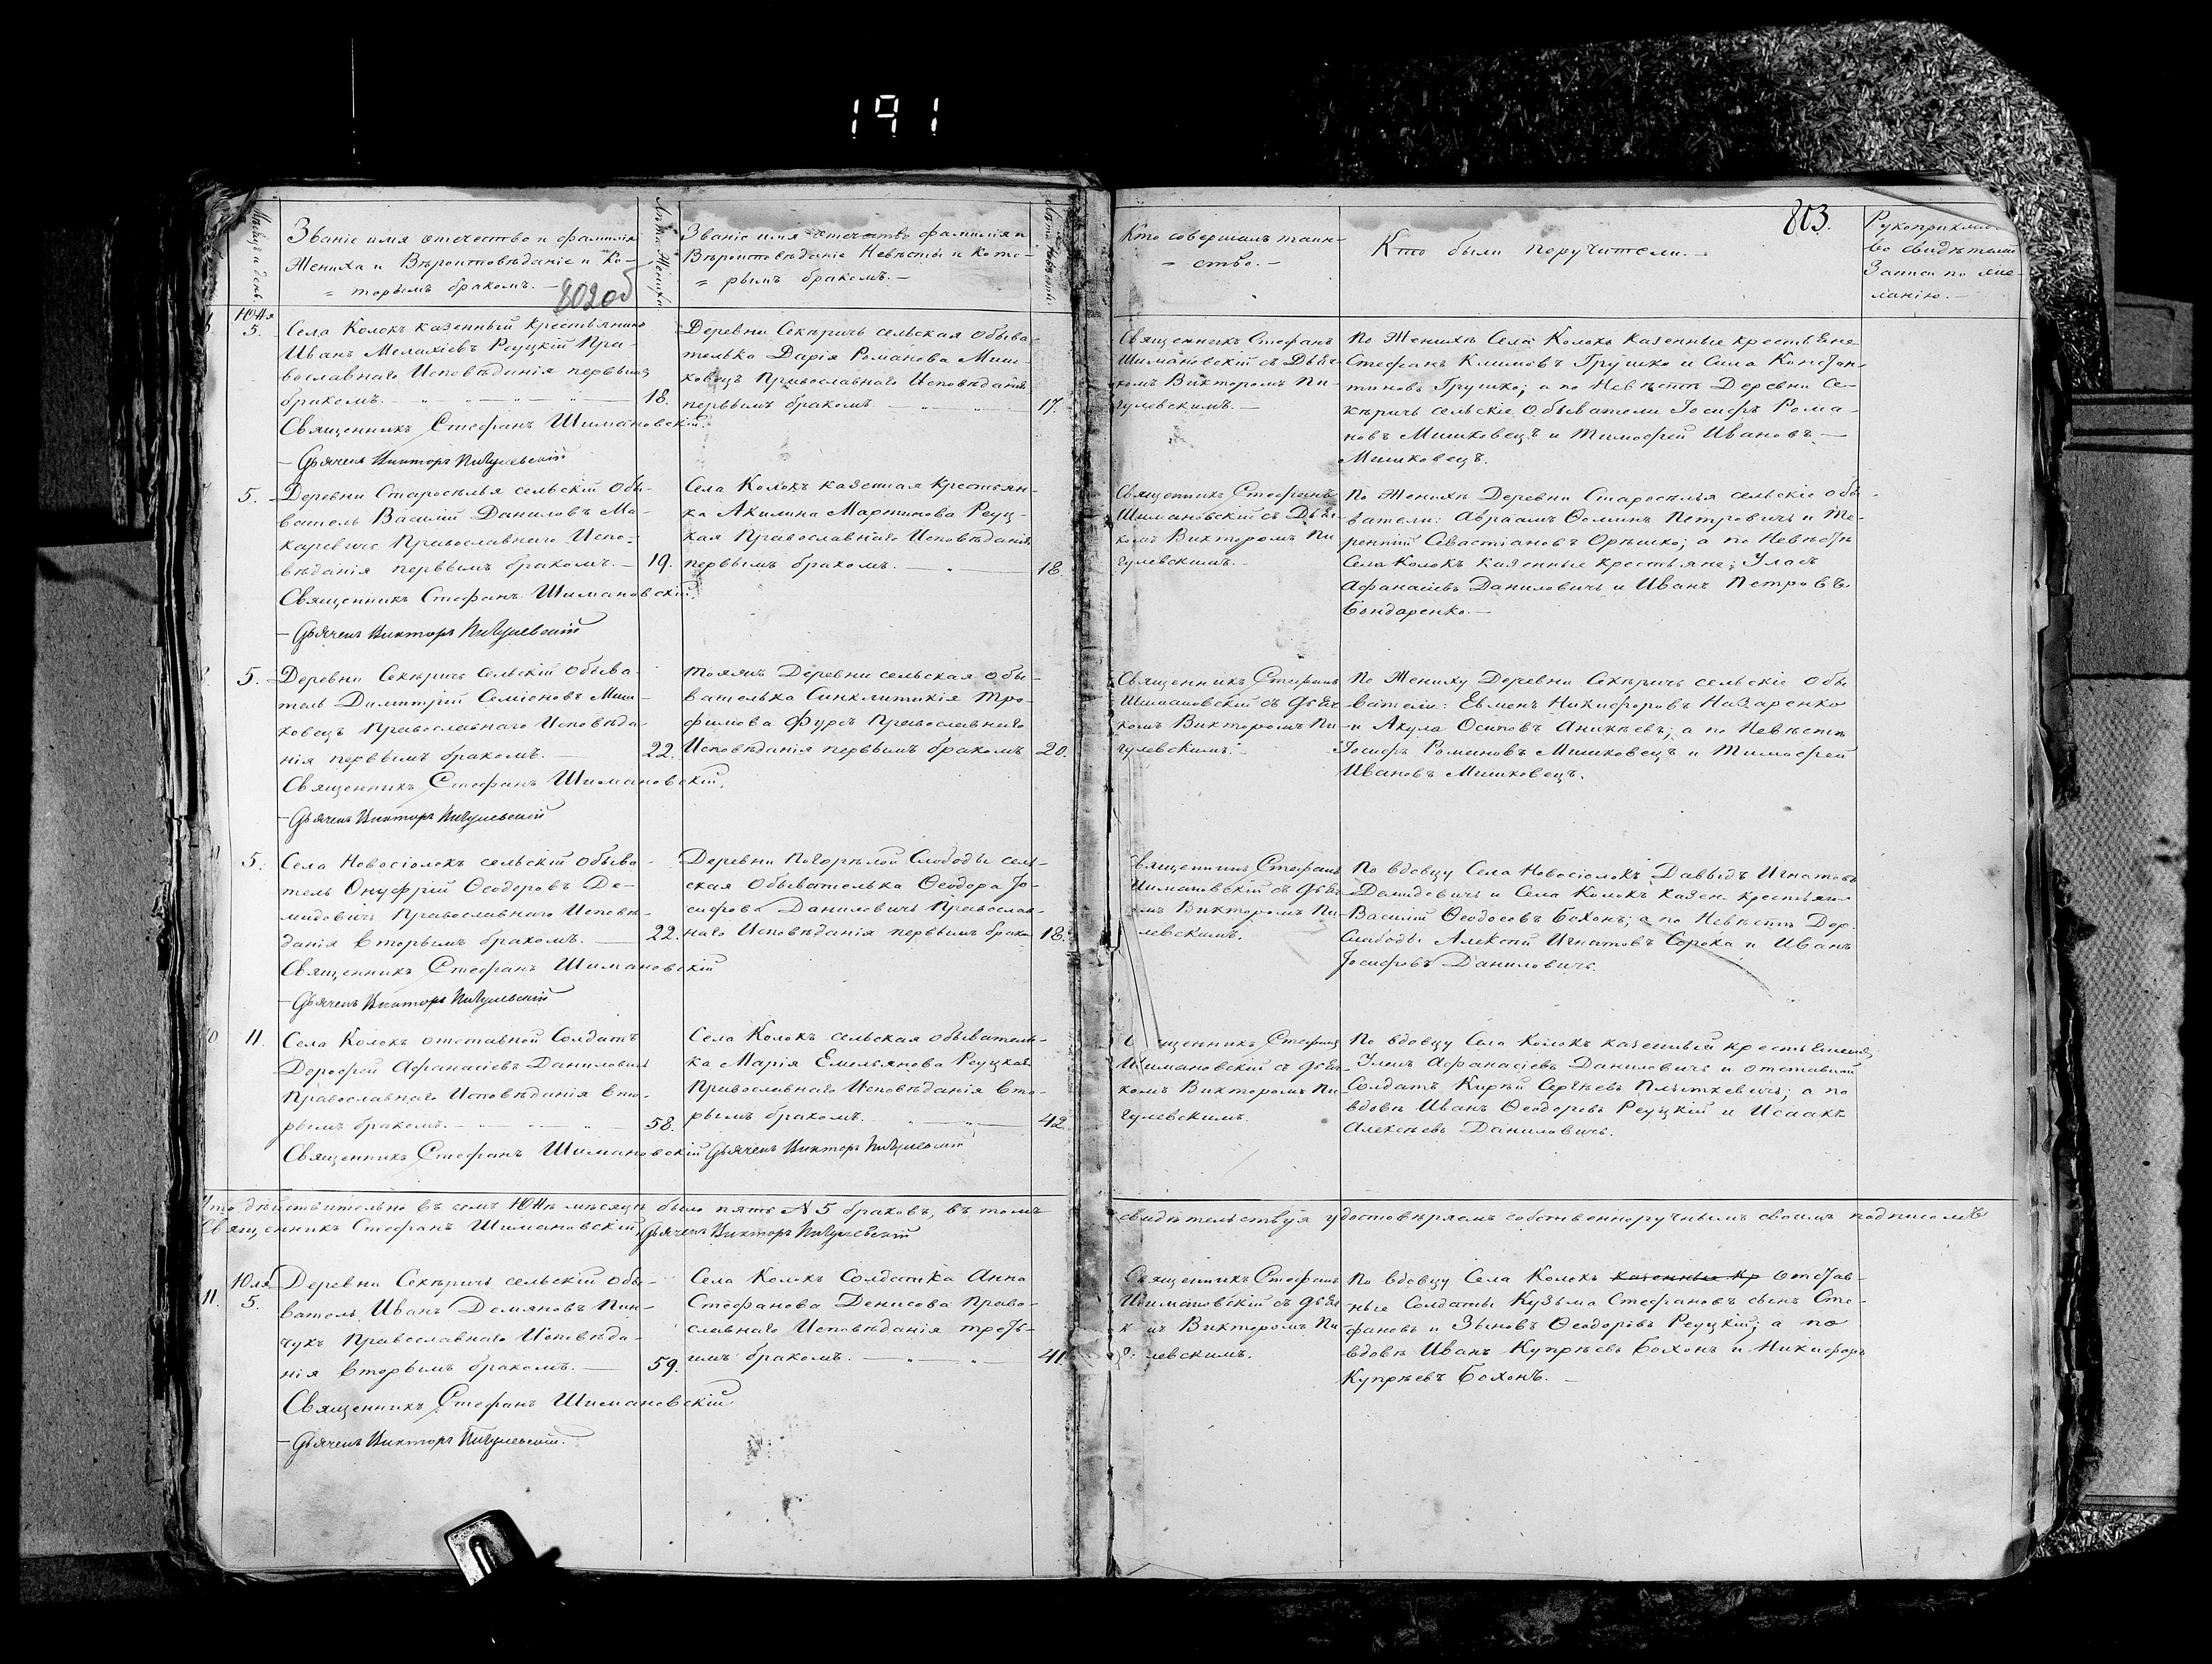 191
803.
Мѣсяцъ и день.
Званіе имя отечество и фамилія
Жениха и Вѣроисповѣданіе и Ко-
= торымъ бракомъ. —
802 об
Лѣта Жениха.
Званіе имя отечество фамилія и
Вѣроисповѣданіе Невѣсты и Кото-
= рымъ бракомъ. —
Кто совершилъ таин-
= ство. —
Кто были поручители. —
Рукоприкладс
во свидѣтелей
Записи по же-
ланію. —
Юня
5.
Села Колокъ казенный крестьянинъ
Иванъ Мелахіевъ Реуцкій Пра-
вославнаго Исповѣданія первымъ
бракомъ. — 18.
Священникъ Стефанъ Шимановскій.
— Дьячекъ Викторъ Пигулевскій
Деревни Секѣричъ сельская обыва-
телька Дарія Романова Миш-
ковецъ Православнаго Исповѣданія
первымъ бракомъ — 17.
Священникъ Стефанъ
Шимановскій съ Дьяч-
комъ Викторомъ Пи-
гулевскимъ. —
По Женихѣ Села Колокъ Казенные крестьяне
Стефанъ Климовъ Грушко и Сила Констан-
тиновъ Грушко; а по Невѣстѣ Деревни Се-
кѣричъ сельскіе обыватели Іосифъ Рома-
новъ Мишковецъ и Тимофей Ивановъ —
Мишковецъ.
7 5.
Деревни Старосѣлья сельскій Обы-
ватель Василій Даниловъ Ма-
каревичъ Православнаго Испо-
вѣданія первымъ бракомъ. — 19.
Священникъ Стефанъ Шимановскій.
— Дьячекъ Викторъ Пигулевскій
Села Колокъ казенная крестьян-
ка Акилина Мартинова Реуц-
кая Православнаго Исповѣданія
первымъ бракомъ. — 18.
Священникъ Стефанъ
Шимановскій съ Дьяч-
комъ Викторомъ Пи
гулевскимъ. —
По Женихѣ Деревни Старосѣлья сельскіе обы-
ватели: Авраамъ Ѳоминъ Петровичъ и Те-
рентій Севастіановъ Орѣшко; а по Невѣстѣ
Села Колокъ казенные крестьяне; Уласъ
Афанасіевъ Даниловичъ и Иванъ Петровъ
Бондаренко. —
5.
Деревни Секѣричъ Сельскій Обыва-
тель Димитрій Семіоновъ Миш-
ковецъ Православнаго Исповѣда-
нія первымъ бракомъ. — 22.
Священникъ Стефанъ Шимановскій,
— Дьячекъ Викторъ Пигулевскій
Тояжъ Деревни сельская обы-
вателька Синклитикія Тро-
фимова Фурсъ Православнаго
Исповѣданія первымъ бракомъ 20.
Священникъ Стефанъ
Шимановскій съ дьяч
комъ Викторомъ Пи-
гулевскимъ. —
По Жениху Деревни Секѣричъ сельскіе Обы
ватели: Евменъ Никифоровъ Назаренко
и Акула Осиповъ Аникѣевъ; а по Невѣстѣ
Іосифъ Романовъ Мишковецъ и Тимофей
Ивановъ Мишковецъ.
5.
Села Новосіолокъ сельскій обыва-
тель Онуфрій Ѳеодоровъ Де-
мидовичъ Православнаго Исповѣ-
данія вторымъ бракомъ. — 22.
Священникъ Стефанъ Шимановскій
— Дьячекъ Викторъ Пигулевскій
Деревни Погорѣлой Слободы сель-
ская Обывателька Ѳеодора Іо-
сифова Даниловичъ Православ-
наго Исповѣданія первымъ брако 18.
вященникъ Стефанъ
Шимановскій съ дьяч
омъ Викторомъ Пи-
левскимъ.
По вдовцу Села Новосіолокъ Давыдъ Игнатовъ
Демидовичъ и Села Колокъ казен. крестьян
Василій Ѳеодосовъ Бохонъ; а по Невѣстѣ Дер.
Слободы Алексѣй Игнатовъ Сорока и Иванъ
Іосифовъ Даниловичъ.
0 11.
Села Колокъ отставной Солдатъ
Дорофей Афанасіевъ Даниловичъ
Православнаго Исповѣданія вто-
рымъ бракомъ. — 58.
Священникъ Стефанъ Шимановскій Дьячекъ Викторъ Пигулевскій
Села Колокъ сельская обыватель-
ка Марія Емельянова Реуцкая
Православнаго Исповѣданія вто-
рымъ бракомъ. — 42
щенникъ Стефанъ
Шимановскій съ дьяч-
комъ Викторомъ Пи-
гулевскимъ.
По вдовцу Села Колокъ казенный крестьянинъ,
Улисъ Афанасіевъ Даниловичъ и отставной
Солдатъ Кирѣй Сергѣевъ Плыткевичъ; а по
вдовѣ Иванъ Ѳеодоровъ Реуцкій и Исаакъ
Алексѣевъ Даниловичъ.
Что дѣйствительно въ семъ Юнѣ мѣсяцѣ было пять № 5 браковъ, въ томъ свидѣтельствуя удостовѣряемъ собственноручнымъ своимъ подписомъ
Священникъ Стефанъ Шимановскій Дьячекъ Викторъ Пигулевскій
11.
Юля
5.
Деревни Секѣричъ сельскій обы-
ватель Иванъ Демяновъ Пин-
чукъ Православнаго Исповѣда-
нія вторымъ бракомъ. — 59.
Священникъ Стефанъ Шимановскій
— Дьячекъ Викторъ Пигулевскій.
Села Колокъ Солдатка Анна
Стефанова Денисова Право-
славнаго Исповѣданія треть-
имъ бракомъ. — 41
Священникъ Стефанъ
Шимановскій съ дьяч
к мъ Викторомъ Пи
гулевскимъ.
По вдовцу Села Колокъ казенные кр отстав-
ные Солдаты Кузьма Стефановъ сынъ Сте-
фановъ и Зыновъ Ѳеодоровъ Реуцкій; а по
вдовѣ Иванъ Купрѣевъ Бохонъ и Никифоръ
Купрѣевъ Бохонъ. —